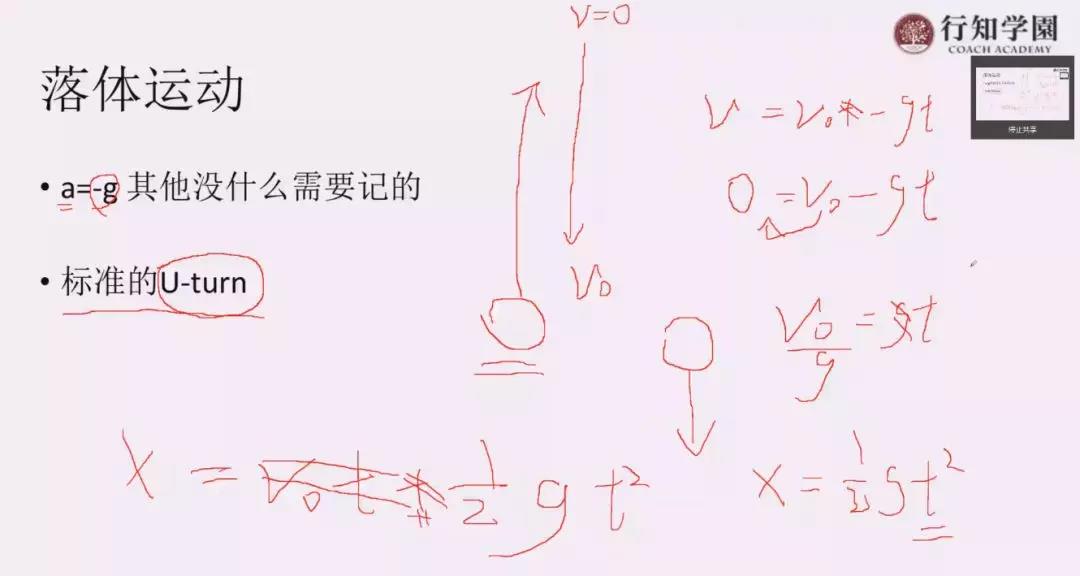 行知学園
COACH ACADEMY
落体运动
• a=-g 其他没什么需要记的
• 标准的U-turn
停止共享
v=0
v₀
v = v₀ - gt
0 = v₀ - gt
v₀/g = t
x = 1/2 g t²
x = 1/2 gt²